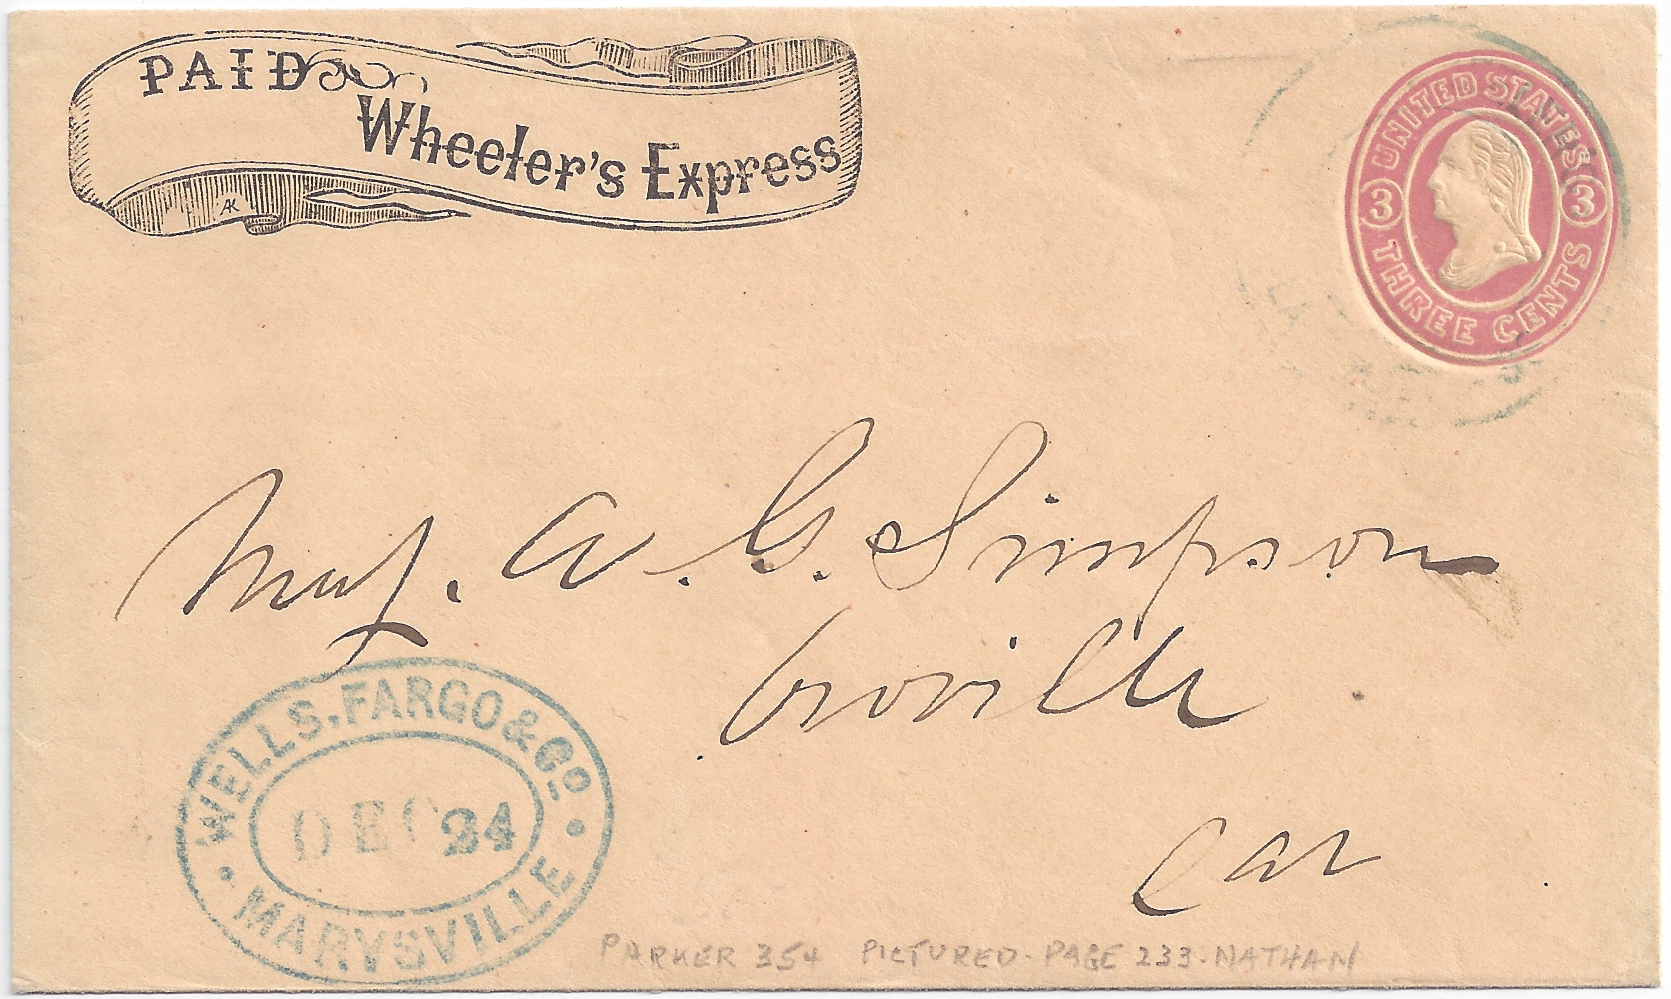 PAID
Wheeler's Express
AK
UNITED STATES
3 3
THREE CENTS
Maj. A. G. Simpson
Oroville
Cal
WELLS, FARGO & Co
DEC 24
MARYSVILLE
PARKER 354 PICTURED - PAGE 233 - NATHAN